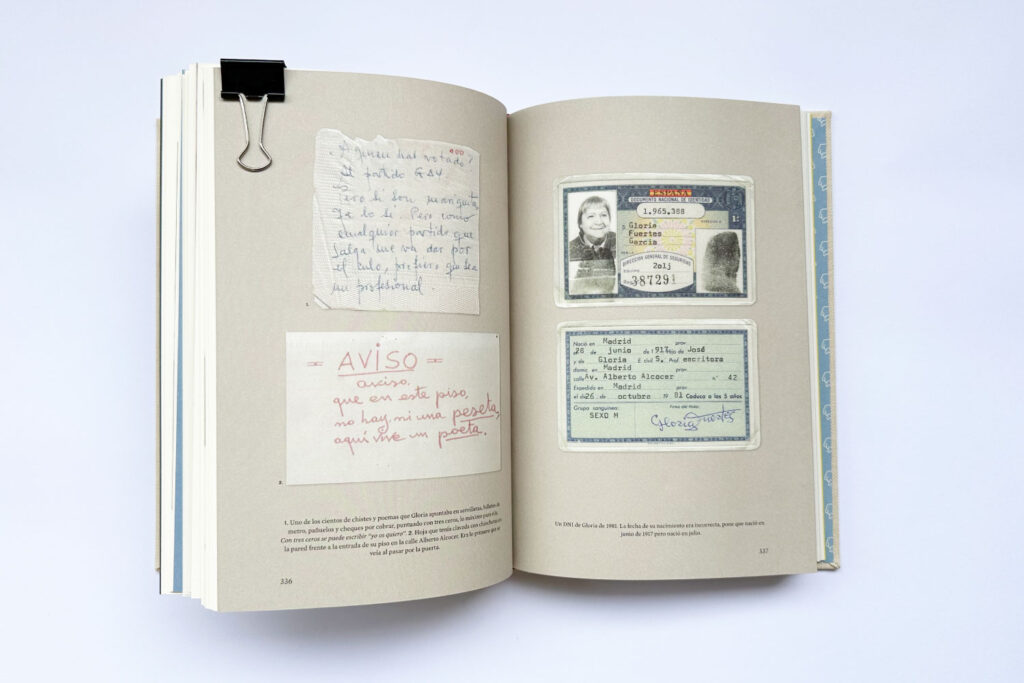 A quien has votado?
000
Al partido GAY.
Pero si son mariquitas
Ya lo sé. Pero como
cualquier partido que
salga me va dar por
el culo, prefiero que sea
un profesional.
1.
= AVISO =
aviso,
que en este piso,
no hay ni una peseta,
aquí vive un poeta.
2.
1. Uno de los cientos de chistes y poemas que Gloria apuntaba en servilletas, billetes de
metro, pañuelos y cheques por cobrar, puntuado con tres ceros, lo máximo para ella.
Con tres ceros se puede escribir "yo os quiero". 2. Hoja que tenía clavada con chinchetas en
la pared frente a la entrada de su piso en la calle Alberto Alcocer. Era lo primero que se
veía al pasar por la puerta.
336
ESPAÑA
DOCUMENTO NACIONAL DE IDENTIDAD
1.965.388
D. Gloria
Fuertes
García
DIRECCION GENERAL DE SEGURIDAD
Equipo 2alj
Reg. 387291
Nació en Madrid prov.
28 de junio de 1917 hijo de José
y de Gloria E. civil S. Prof. escritora
domic. en Madrid prov.
calle Av. Alberto Alcocer n.° 42
Expedido en Madrid prov.
el 26 de octubre 1981 Caduca a los 5 años
Grupo sanguíneo: Firma del titular,
SEXO M
Gloria Fuertes
Un DNI de Gloria de 1981. La fecha de su nacimiento era incorrecta, pone que nació en
junio de 1917 pero nació en julio.
337